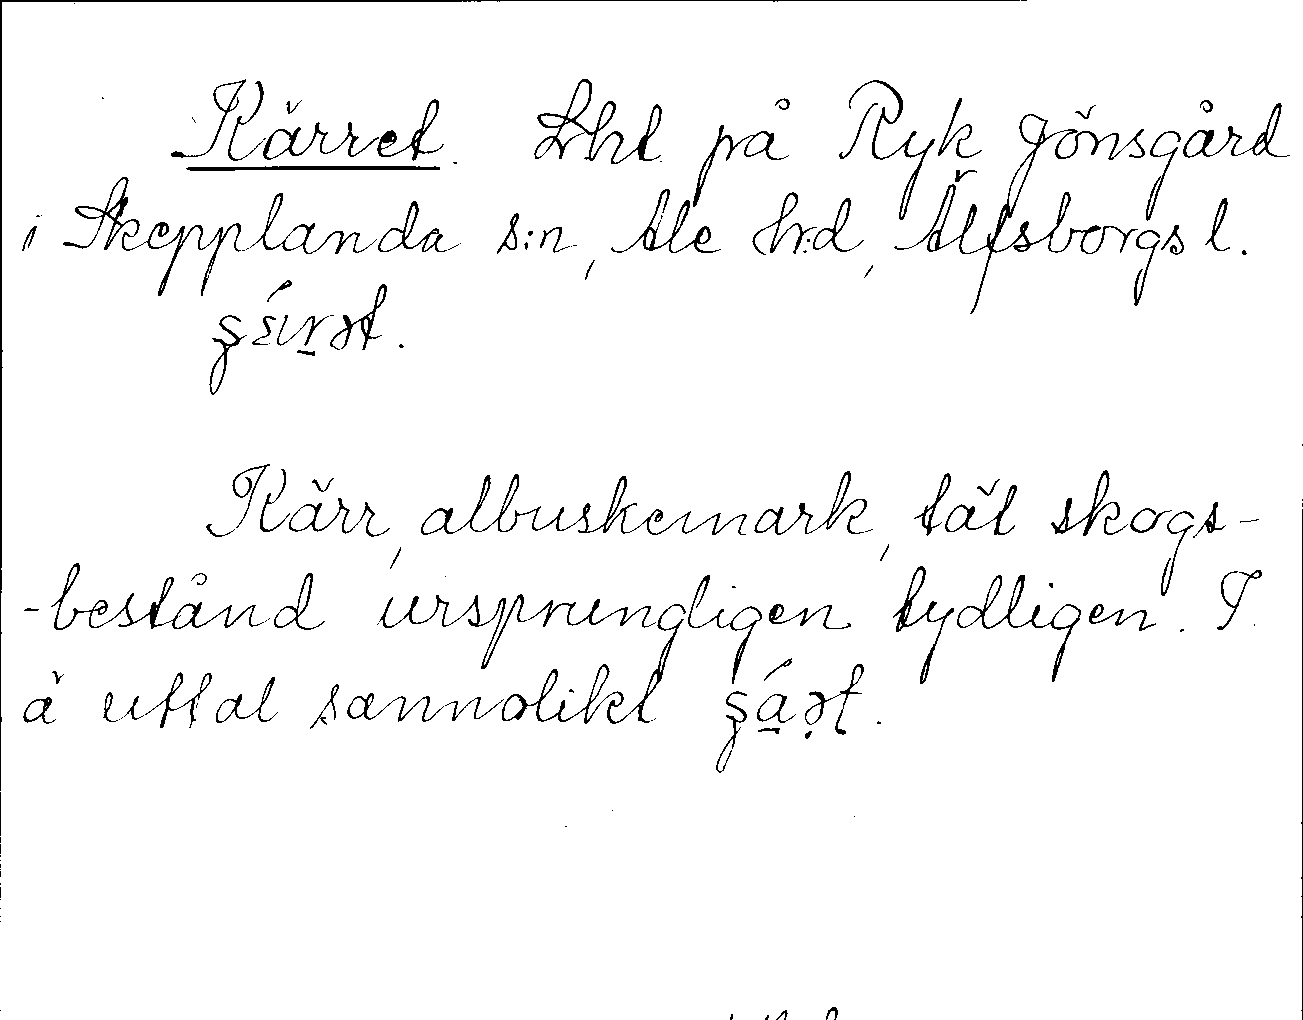 Kärret. Lht på Ryk Jönsgård
i Skepplanda s:n, Ale h:d, Älfsborgs l.
Kärr, albuskemark, tät skogs-
-bestånd ursprungligen tydligen. T.
ä uttal sannolikt